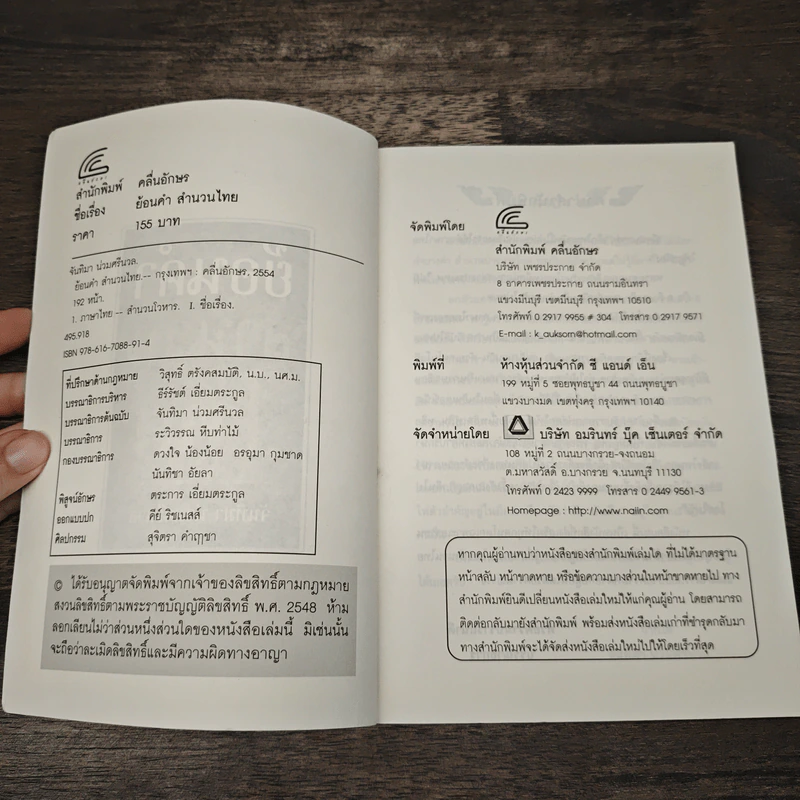 คลื่นอักษร
สำนักพิมพ์ คลื่นอักษร
ชื่อเรื่อง ย้อนคำ สำนวนไทย
ราคา 155 บาท
จันทิมา น่วมศรีนวล.
ย้อนคำ สำนวนไทย.-- กรุงเทพฯ : คลื่นอักษร, 2554
192 หน้า.
1. ภาษาไทย -- สำนวนโวหาร. I. ชื่อเรื่อง.
495.918
ISBN 978-616-7088-91-4
ที่ปรึกษาด้านกฎหมาย วิสุทธิ์ ตรังคสมบัติ, น.บ., นศ.ม.
บรรณาธิการบริหาร ธีร์รัชต์ เอี่ยมตระกูล
บรรณาธิการต้นฉบับ จันทิมา น่วมศรีนวล
บรรณาธิการ ระวิวรรณ หีบท่าไม้
กองบรรณาธิการ ดวงใจ น้องน้อย อรอุมา กุมชาด
นันทิชา อัยลา
พิสูจน์อักษร ตระการ เอี่ยมตระกูล
ออกแบบปก คีย์ ริชเนสส์
ศิลปกรรม สุจิตรา คำฤๅชา
© ได้รับอนุญาตจัดพิมพ์จากเจ้าของลิขสิทธิ์ตามกฎหมาย
สงวนลิขสิทธิ์ตามพระราชบัญญัติลิขสิทธิ์ พ.ศ. 2548 ห้าม
ลอกเลียนไม่ว่าส่วนหนึ่งส่วนใดของหนังสือเล่มนี้ มิเช่นนั้น
จะถือว่าละเมิดลิขสิทธิ์และมีความผิดทางอาญา
จัดพิมพ์โดย คลื่นอักษร
สำนักพิมพ์ คลื่นอักษร
บริษัท เพชรประกาย จำกัด
8 อาคารเพชรประกาย ถนนรามอินทรา
แขวงมีนบุรี เขตมีนบุรี กรุงเทพฯ 10510
โทรศัพท์ 0 2917 9955 # 304 โทรสาร 0 2917 9571
E-mail : k_auksorn@hotmail.com
พิมพ์ที่ ห้างหุ้นส่วนจำกัด ซี แอนด์ เอ็น
199 หมู่ที่ 5 ซอยพุทธบูชา 44 ถนนพุทธบูชา
แขวงบางมด เขตทุ่งครุ กรุงเทพฯ 10140
จัดจำหน่ายโดย บริษัท อมรินทร์ บุ๊ค เซ็นเตอร์ จำกัด
108 หมู่ที่ 2 ถนนบางกรวย-จงถนอม
ต.มหาสวัสดิ์ อ.บางกรวย จ.นนทบุรี 11130
โทรศัพท์ 0 2423 9999 โทรสาร 0 2449 9561-3
Homepage : http://www.naiin.com
หากคุณผู้อ่านพบว่าหนังสือของสำนักพิมพ์เล่มใด ที่ไม่ได้มาตรฐาน
หน้าสลับ หน้าขาดหาย หรือข้อความบางส่วนในหน้าขาดหายไป ทาง
สำนักพิมพ์ยินดีเปลี่ยนหนังสือเล่มใหม่ให้แก่คุณผู้อ่าน โดยสามารถ
ติดต่อกลับมายังสำนักพิมพ์ พร้อมส่งหนังสือเล่มเก่าที่ชำรุดกลับมา
ทางสำนักพิมพ์จะได้จัดส่งหนังสือเล่มใหม่ไปให้โดยเร็วที่สุด